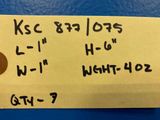 KSC 877/075
L-1" H-6"
W-1" WGHT-4OZ
QTY-